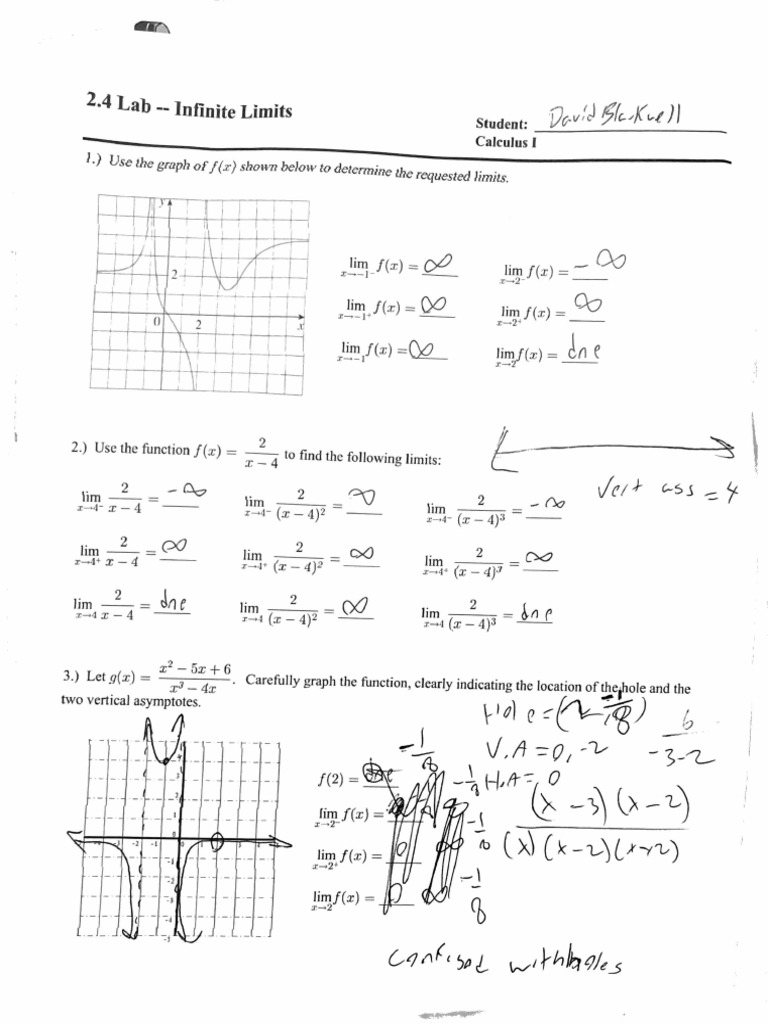 2.4 Lab -- Infinite Limits
Student: David Blackwell
Calculus I
1.) Use the graph of f(x) shown below to determine the requested limits.
y
2
0 2 x
lim x→-1⁻ f(x) = ∞
lim x→2⁻ f(x) = -∞
lim x→-1⁺ f(x) = ∞
lim x→2⁺ f(x) = ∞
lim x→-1 f(x) = ∞
lim x→2 f(x) = dne
2.) Use the function f(x) = 2/(x − 4) to find the following limits:
Vert ass = 4
lim x→4⁻ 2/(x − 4) = -∞
lim x→4⁻ 2/(x − 4)² = ∞
lim x→4⁻ 2/(x − 4)³ = -∞
lim x→4⁺ 2/(x − 4) = ∞
lim x→4⁺ 2/(x − 4)² = ∞
lim x→4⁺ 2/(x − 4)³ = ∞
lim x→4 2/(x − 4) = dne
lim x→4 2/(x − 4)² = ∞
lim x→4 2/(x − 4)³ = dne
3.) Let g(x) = (x² − 5x + 6)/(x³ − 4x). Carefully graph the function, clearly indicating the location of the hole and the
two vertical asymptotes.
Hole = (2, -1/8)
6/-3-2
V.A = 0, -2
H.A = 0
(x -3)(x -2)
(x)(x-2)(x+2)
f(2) =
-1/8
lim x→2⁻ f(x) =
-1/8
lim x→2⁺ f(x) =
-1/8
lim x→2 f(x) =
-1/8
confised with holes